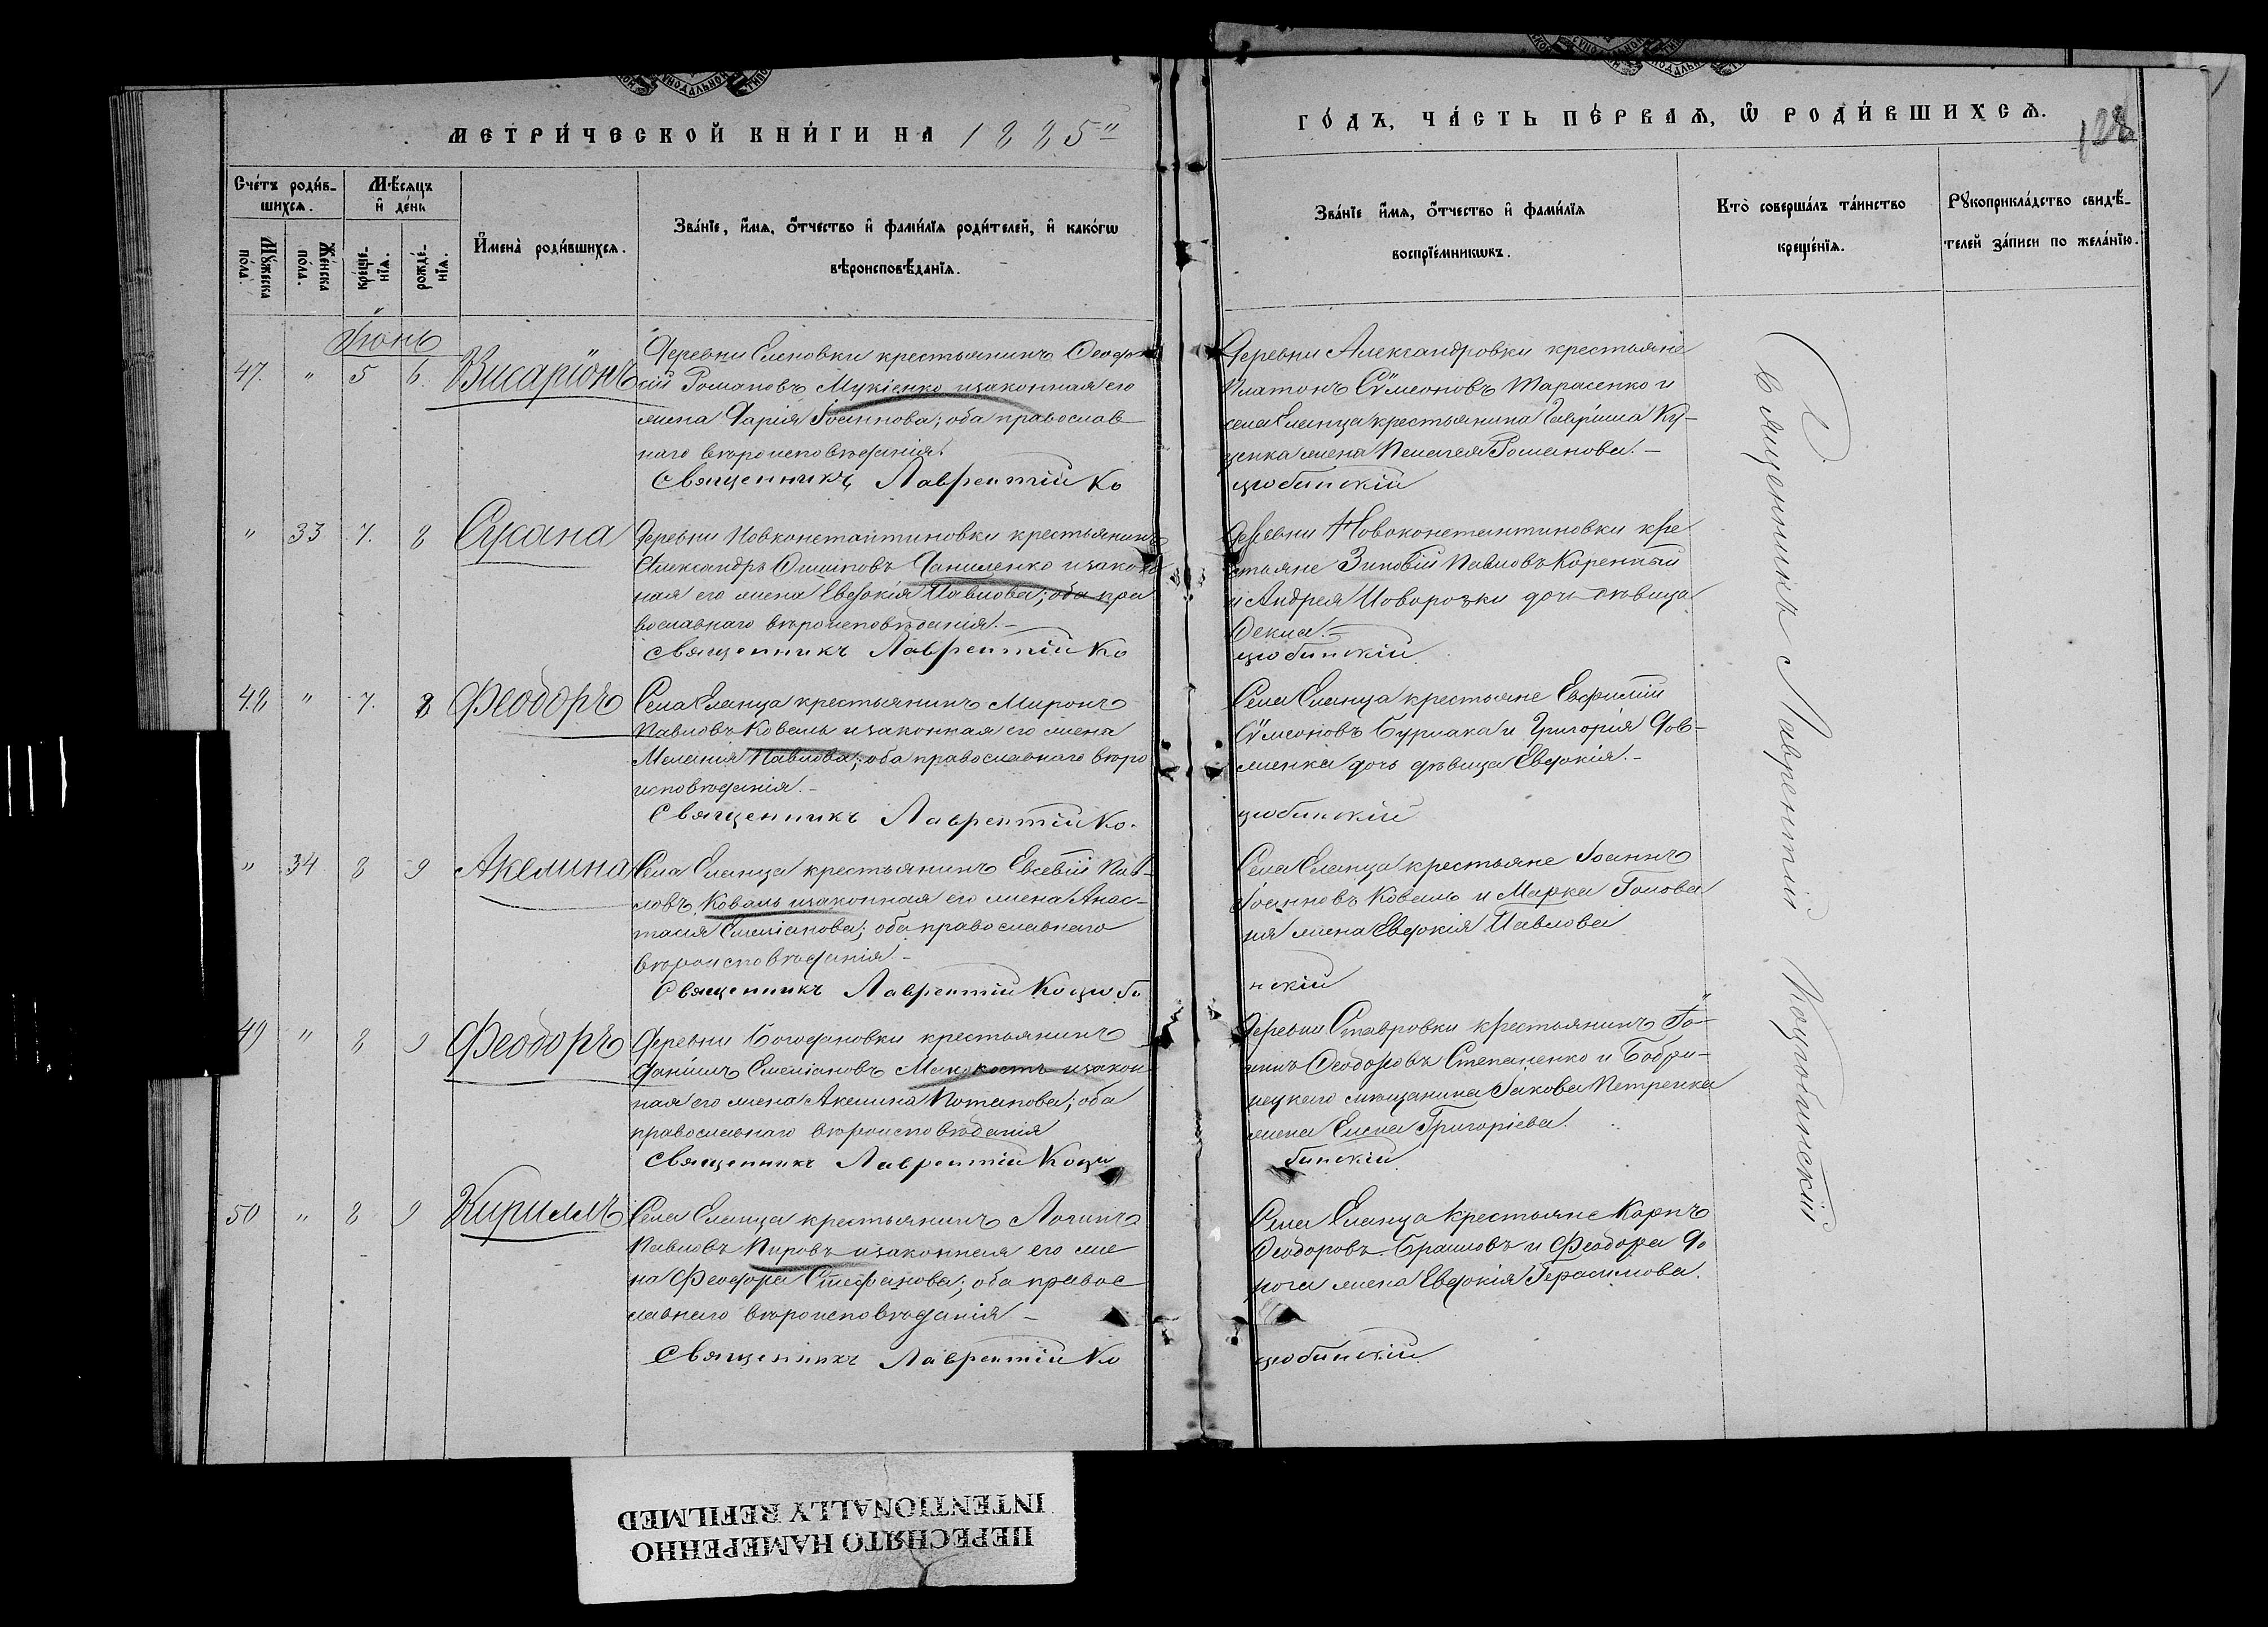 МЕТРИ́ЧЕСКОЙ КНИ́ГИ НА 1885й
ГО́ДЪ, ЧА́СТЬ ПЕ́РВАѦ, Ѡ҆ РОДИ́ВШИХСѦ.
Сче́тъ роди́в-
шихсѧ.
Мѣ́сѧцъ
и҆ де́нь
И҆мена̀ роди́вшихсѧ.
Зва́нїе, и҆́мѧ, ѻ҆́тчество и҆ фами́лїѧ роди́телей, и҆ како́гѡ
вѣроисповѣ́данїѧ.
Мꙋ́жеска
по́ла.
Же́нска
по́ла.
кре́ще-
нїѧ.
рожде́-
нїѧ.
Зва́нїе и҆́мѧ, ѻ҆́тчество и҆ фами́лїѧ
воспрїе́мникѡвъ.
Кто̀ соверша́лъ та́инство
креще́нїѧ.
Рꙋкоприкла́дство свидѣ́-
телей за́писи по жела́нїю.
Іюнь
47. " 5 6. Висаріонъ
Деревни Еленовки крестьянинъ Феофа
кій Романовъ Мукіенко изаконная его
жена Дарія Іоаннова; оба православ-
наго вѣроисповѣданія.
Священникъ Лаврентій Ко
Деревни Александровки крестьяне
Платонъ Сѵмеоновъ Тарасенко и
села Еланца крестьянина Гавріила Ку-
ценка жена Пелагея Романова.-
цюбинскій
" 33 7. 8 Сусана
Деревни Новконстантиновки крестьянинъ
Александръ Даниленко изакон
ная его жена Евдокія Павлова; оба пра
вославнаго вѣроисповѣданія.-
Священникъ Лаврентій Ко
Деревни Новоконстантиновки кре
стьяне Зиновій Павловъ Коренный
и Андрея Поворозки дочь дѣвица
Фекла.-
цюбинскій
48 " 7. 8 Феодоръ
Села Еланца крестьянинъ Миронъ
Павловъ Коваль изаконная его жена
Меланія Павлова; оба православнаго вѣро
исповѣданія.-
Священникъ Лаврентій Ко.
Села Еланца крестьяне Евфимій
Сѵмеоновъ Бурлака и Григорія Дов-
женка дочь дѣвица Евдокія.-
цюбинскій
" 34 8 9 Акелина
Села Еланца крестьянинъ Евсевій Пав-
ловъ Коваль изаконная его жена Анас-
тасія Емеліанова; оба православнаго
вѣроисповѣданія-
Священникъ Лаврентій Коцюби
Села Еланца крестьяне Іоаннъ
Іоанновъ Коваль и Марка Голова
ня жена Евдокія Павлова
нскій
49 " 8 9 Феодоръ
Деревни Богодановки крестьянинъ
Даніилъ Емеліановъ изакон
ная его жена Акелина Потапова; оба
православнаго вѣроисповѣданія
Священникъ Лаврентій Коцю
Деревни Ставровки крестьянинъ Іоа-
ннъ Феодоровъ Степаненко и Бобри-
нецкаго мѣщанина Іакова Петренка
жена Елена Григоріева.
бинскій
50 " 8 9 Кириллъ
Села Еланца крестьянинъ Логинъ
Павловъ Пировъ изаконная его же
на Феодора Стефанова; оба правос
лавнаго вѣроисповѣданія-
Священникъ Лаврентій Ко
Села Еланца крестьяне Карпъ
Феодоровъ Браиловъ и Феодора До
рога жена Евдокія Герасимова.
цюбинскій
Священникъ Лаврентій Коцюбинскій
ПЕРЕСНЯТО НАМЕРЕННО
INTENTIONALLY REFILMED